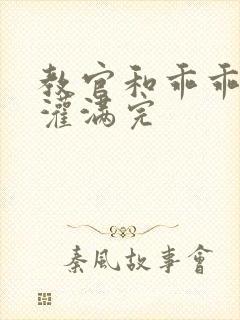 教官和乖乖
灌满完
秦風故事會